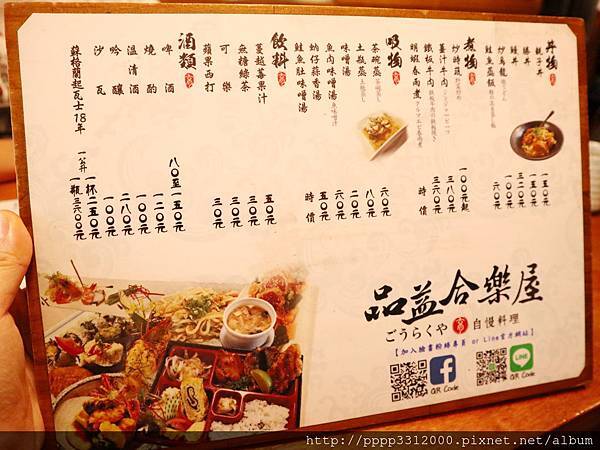 丼物
親子丼 一五〇元
勝丼 一五〇元
鰻丼 三二〇元
炒烏龍 一〇〇元
鮭魚蒸飯 六〇元
煮物
炒時蔬 一〇〇元起
薑汁牛肉 一八〇元
鐵板牛肉 三六〇元
明蝦春雨煮 時價
吸物
茶碗蒸 六〇元
土瓶蒸 八〇元
味噌湯 二〇元
魚肉味噌湯 六〇元
蛤仔蒜香湯 五〇元
鮭魚肚味噌湯 時價
飲料
蔓越莓果汁 五〇元
無糖綠茶 三〇元
可樂 三〇元
蘋果西打 三〇元
酒類
啤酒 八〇至一五〇元
燒酌 一二〇元
溫清酒 一〇〇元
吟釀 二八〇元
沙瓦 一〇〇元
蘇格蘭起瓦士18年 一公升
一杯 二五〇元
一瓶 三六〇〇元
品益合樂屋
ごうらくや 自慢料理
【加入臉書粉絲專頁 or Line官方網站】
QR Code
LINE
QR Code
http://pppp3312000.pixnet.net/album